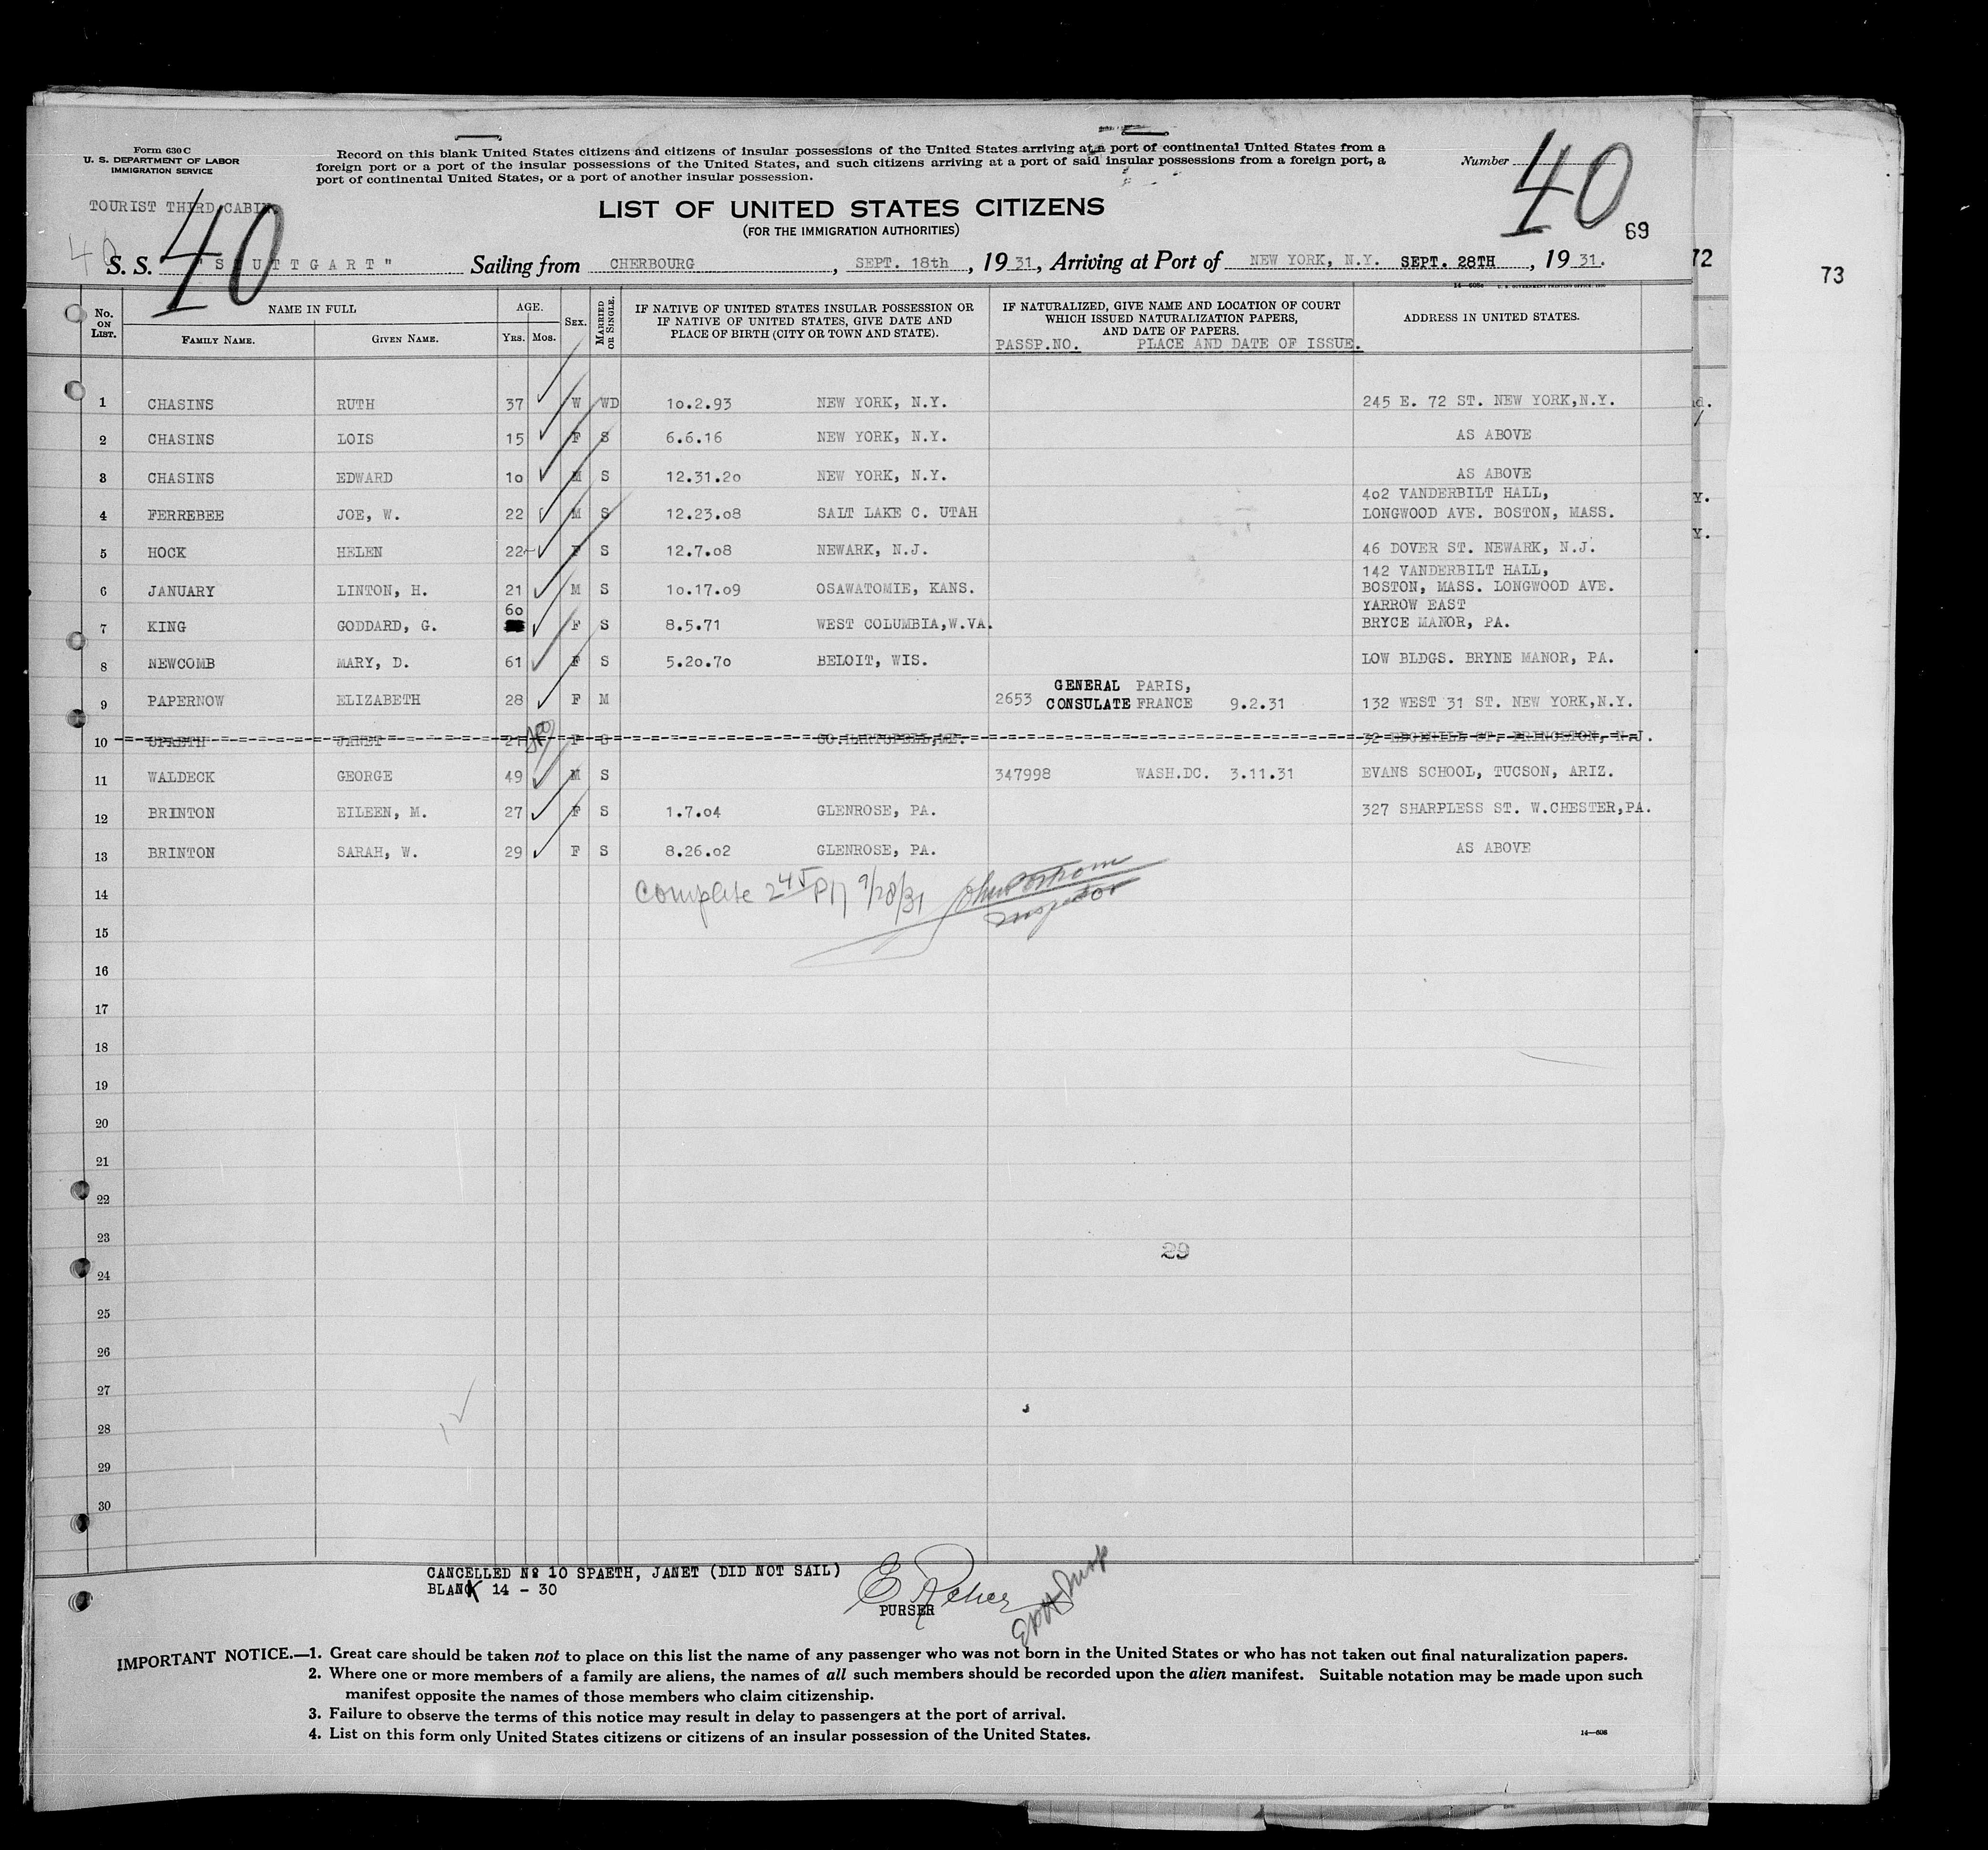 Form 630 C
U. S. DEPARTMENT OF LABOR
IMMIGRATION SERVICE
Record on this blank United States citizens and citizens of insular possessions of the United States arriving at a port of continental United States from a
foreign port or a port of the insular possessions of the United States, and such citizens arriving at a port of said insular possessions from a foreign port, a
port of continental United States, or a port of another insular possession.
Number 40
TOURIST THIRD CABIN
40
LIST OF UNITED STATES CITIZENS
(FOR THE IMMIGRATION AUTHORITIES)
69
40
S. S. "STUTTGART" Sailing from CHERBOURG, SEPT. 18th, 1931, Arriving at Port of NEW YORK, N.Y. SEPT. 28TH, 1931.
72
73
No. ON LIST. NAME IN FULL FAMILY NAME. GIVEN NAME. AGE. YRS. MOS. SEX. MARRIED OR SINGLE.
IF NATIVE OF UNITED STATES INSULAR POSSESSION OR
IF NATIVE OF UNITED STATES, GIVE DATE AND
PLACE OF BIRTH (CITY OR TOWN AND STATE).
IF NATURALIZED, GIVE NAME AND LOCATION OF COURT
WHICH ISSUED NATURALIZATION PAPERS,
AND DATE OF PAPERS.
PASSP.NO. PLACE AND DATE OF ISSUE.
ADDRESS IN UNITED STATES.
1 CHASINS RUTH 37 W WD 10.2.93 NEW YORK, N.Y. 245 E. 72 ST. NEW YORK,N.Y.
2 CHASINS LOIS 15 F S 6.6.16 NEW YORK, N.Y. AS ABOVE
3 CHASINS EDWARD 10 M S 12.31.20 NEW YORK, N.Y. AS ABOVE
402 VANDERBILT HALL,
4 FERREBEE JOE, W. 22 M S 12.23.08 SALT LAKE C. UTAH LONGWOOD AVE. BOSTON, MASS.
5 HOCK HELEN 22 F S 12.7.08 NEWARK, N.J. 46 DOVER ST. NEWARK, N.J.
142 VANDERBILT HALL,
6 JANUARY LINTON, H. 21 M S 10.17.09 OSAWATOMIE, KANS. BOSTON, MASS. LONGWOOD AVE.
60 YARROW EAST
7 KING GODDARD, G. F S 8.5.71 WEST COLUMBIA,W.VA. BRYCE MANOR, PA.
8 NEWCOMB MARY, D. 61 F S 5.20.70 BELOIT, WIS. LOW BLDGS. BRYNE MANOR, PA.
GENERAL PARIS,
9 PAPERNOW ELIZABETH 28 F M 2653 CONSULATE FRANCE 9.2.31 132 WEST 31 ST. NEW YORK,N.Y.
10 SPAETH JANET 27 F S 32 EDGEHILL ST. PRINCETON, N.J.
11 WALDECK GEORGE 49 M S 347998 WASH.DC. 3.11.31 EVANS SCHOOL, TUCSON, ARIZ.
12 BRINTON EILEEN, M. 27 F S 1.7.04 GLENROSE, PA. 327 SHARPLESS ST. W.CHESTER,PA.
13 BRINTON SARAH, W. 29 F S 8.26.02 GLENROSE, PA. AS ABOVE
14 Complete 245 9/28/31 Inspector
15
16
17
18
19
20
21
22
23
29
24
25
26
27
28
29
30
CANCELLED No 10 SPAETH, JANET (DID NOT SAIL)
BLANK 14 - 30
PURSER
IMPORTANT NOTICE.—1. Great care should be taken not to place on this list the name of any passenger who was not born in the United States or who has not taken out final naturalization papers.
2. Where one or more members of a family are aliens, the names of all such members should be recorded upon the alien manifest. Suitable notation may be made upon such
manifest opposite the names of those members who claim citizenship.
3. Failure to observe the terms of this notice may result in delay to passengers at the port of arrival.
4. List on this form only United States citizens or citizens of an insular possession of the United States.
14—608